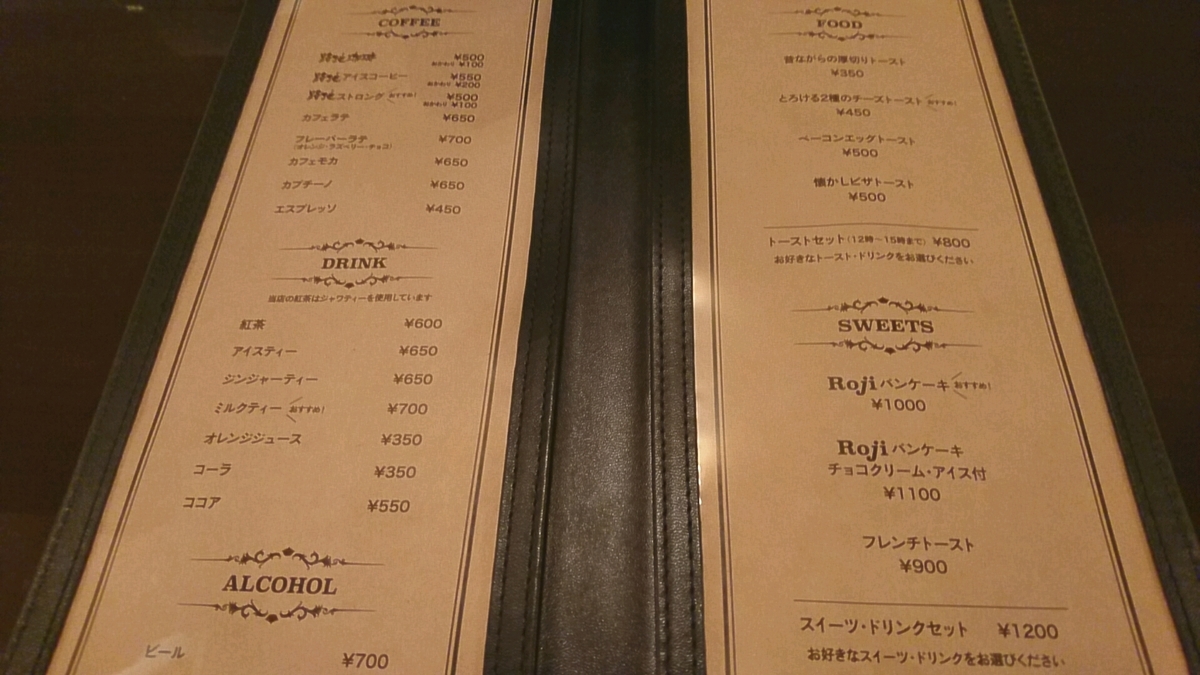 COFFEE
路地珈琲 ¥500
おかわり ¥100
路地アイスコーヒー ¥550
おかわり ¥200
路地ストロング おすすめ! ¥500
おかわり ¥100
カフェラテ ¥650
フレーバーラテ ¥700
(オレンジ・ラズベリー・チョコ)
カフェモカ ¥650
カプチーノ ¥650
エスプレッソ ¥450
DRINK
当店の紅茶はジャワティーを使用しています
紅茶 ¥600
アイスティー ¥650
ジンジャーティー ¥650
ミルクティー おすすめ! ¥700
オレンジジュース ¥350
コーラ ¥350
ココア ¥550
ALCOHOL
ビール ¥700
FOOD
昔ながらの厚切りトースト
¥350
とろける2種のチーズトースト おすすめ!
¥450
ベーコンエッグトースト
¥500
懐かしピザトースト
¥500
トーストセット(12時〜15時まで) ¥800
お好きなトースト・ドリンクをお選びください
SWEETS
Roji パンケーキ おすすめ!
¥1000
Roji パンケーキ
チョコクリーム・アイス付
¥1100
フレンチトースト
¥900
スイーツ・ドリンクセット ¥1200
お好きなスイーツ・ドリンクをお選びください